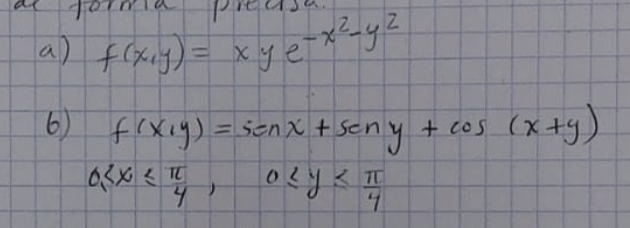 de forma precisa.
a) f(x,y) = x y e^{-x^2-y^2}
b) f(x,y) = sen x + sen y + cos (x+y)
0 ≤ x ≤ π/4 , 0 ≤ y ≤ π/4